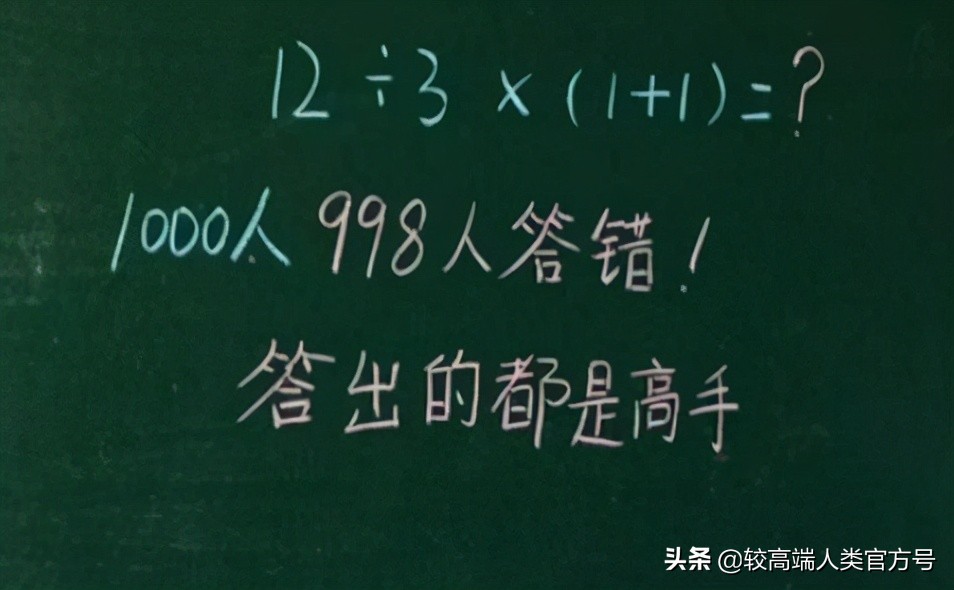 12÷3×(1+1)=?
1000人 998人答错!
答出的都是高手
头条 @较高端人类官方号